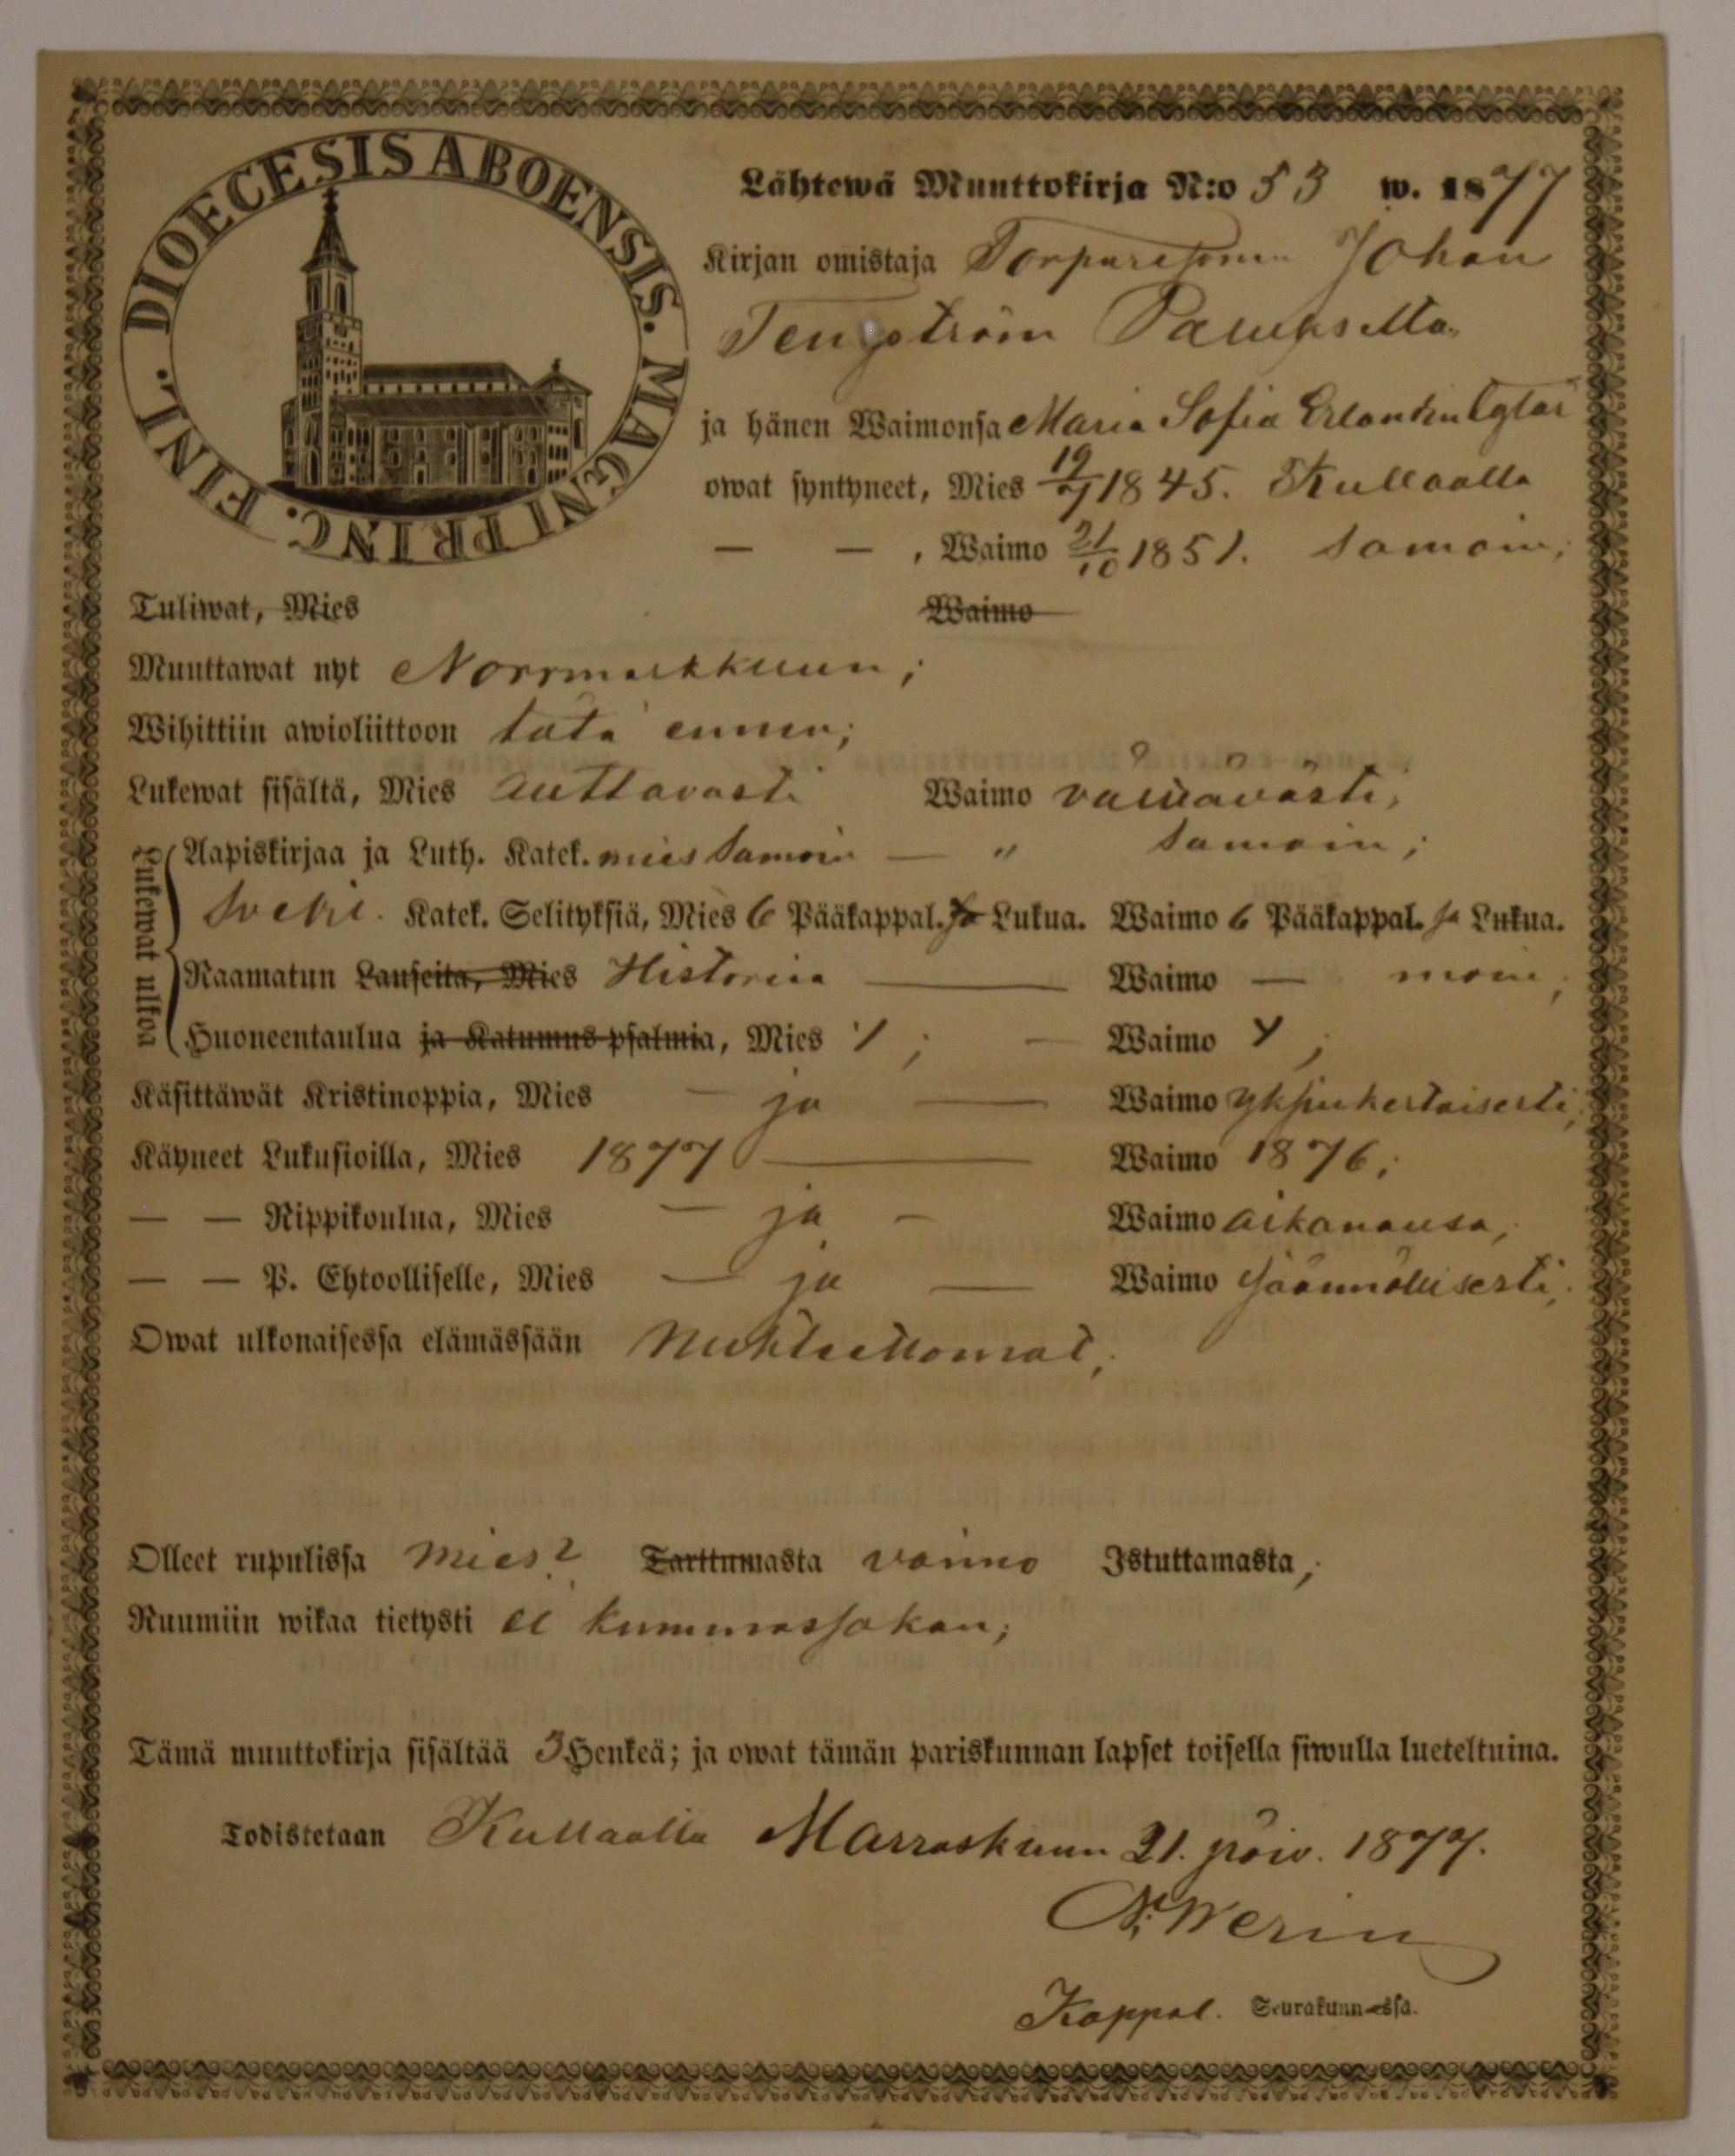 DIOECESIS ABOENSIS. MAGNI PRINC. FINL.
Lähtewä Muuttokirja N:o 53 w. 1877
Kirjan omistaja Johan
Tengström
ja hänen Waimonsa Maria Sofia
owat syntyneet, Mies 19/7 1845. Kullaalla
— — , Waimo 21/10 1851. samoin;
Tuliwat, Mies Waimo
Muuttawat nyt Norrmarkkuun;
Wihittiin awioliittoon tätä ennen;
Lukewat sisältä, Mies auttavasti Waimo välttävästi;
Lukewat ulkoa
Aapiskirjaa ja Luth. Katek. mies samoin — " samoin;
Katek. Selityksiä, Mies 6 Pääkappal. ja Lukua. Waimo 6 Pääkappal. ja Lukua.
Raamatun Lauseita, Mies Historiaa — Waimo — moin;
Huoneentaulua ja Katumus psalmia, Mies 1; — Waimo
Käsittäwät Kristinoppia, Mies — ja — Waimo yksinkertaisesti;
Käyneet Lukusioilla, Mies 1877 — Waimo 1876;
— — Rippikoulua, Mies — ja — Waimo aikanansa;
— — P. Ehtoolliselle, Mies — ja — Waimo säännöllisesti;
Owat ulkonaisessa elämässään nuhteettomat;
Olleet rupulissa mies? Tarttumasta vaimo Istuttamasta;
Ruumiin wikaa tietysti ei kummassakan;
Tämä muuttokirja sisältää 3 Henkeä; ja owat tämän pariskunnan lapset toisella siwulla lueteltuina.
Todistetaan Kullaalla Marraskuun 21. päiv. 1877.
Werin
Kappal. Seurakunnassa.